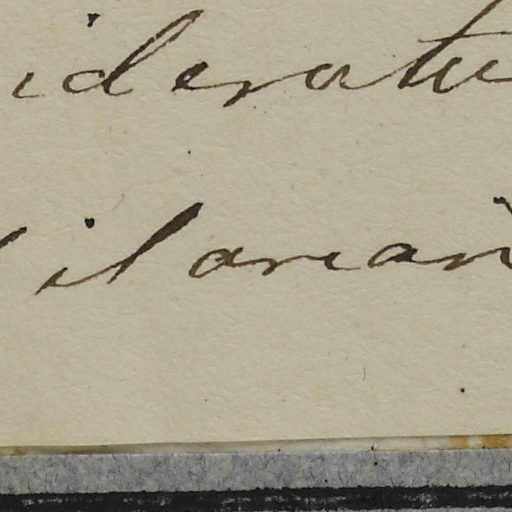 ideratu
il arian